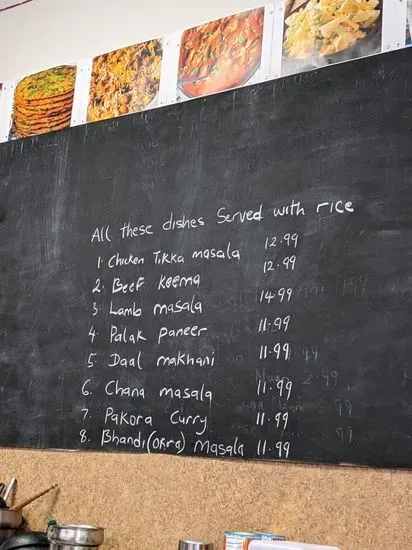 All these dishes Served with rice
1. Chicken Tikka masala 12.99
2. Beef keema 12.99
3. Lamb masala 14.99
4. Palak paneer 11.99
5. Daal makhani 11.99
6. Chana masala 11.99
7. Pakora Curry 11.99
8. Bhandi (okra) Masala 11.99